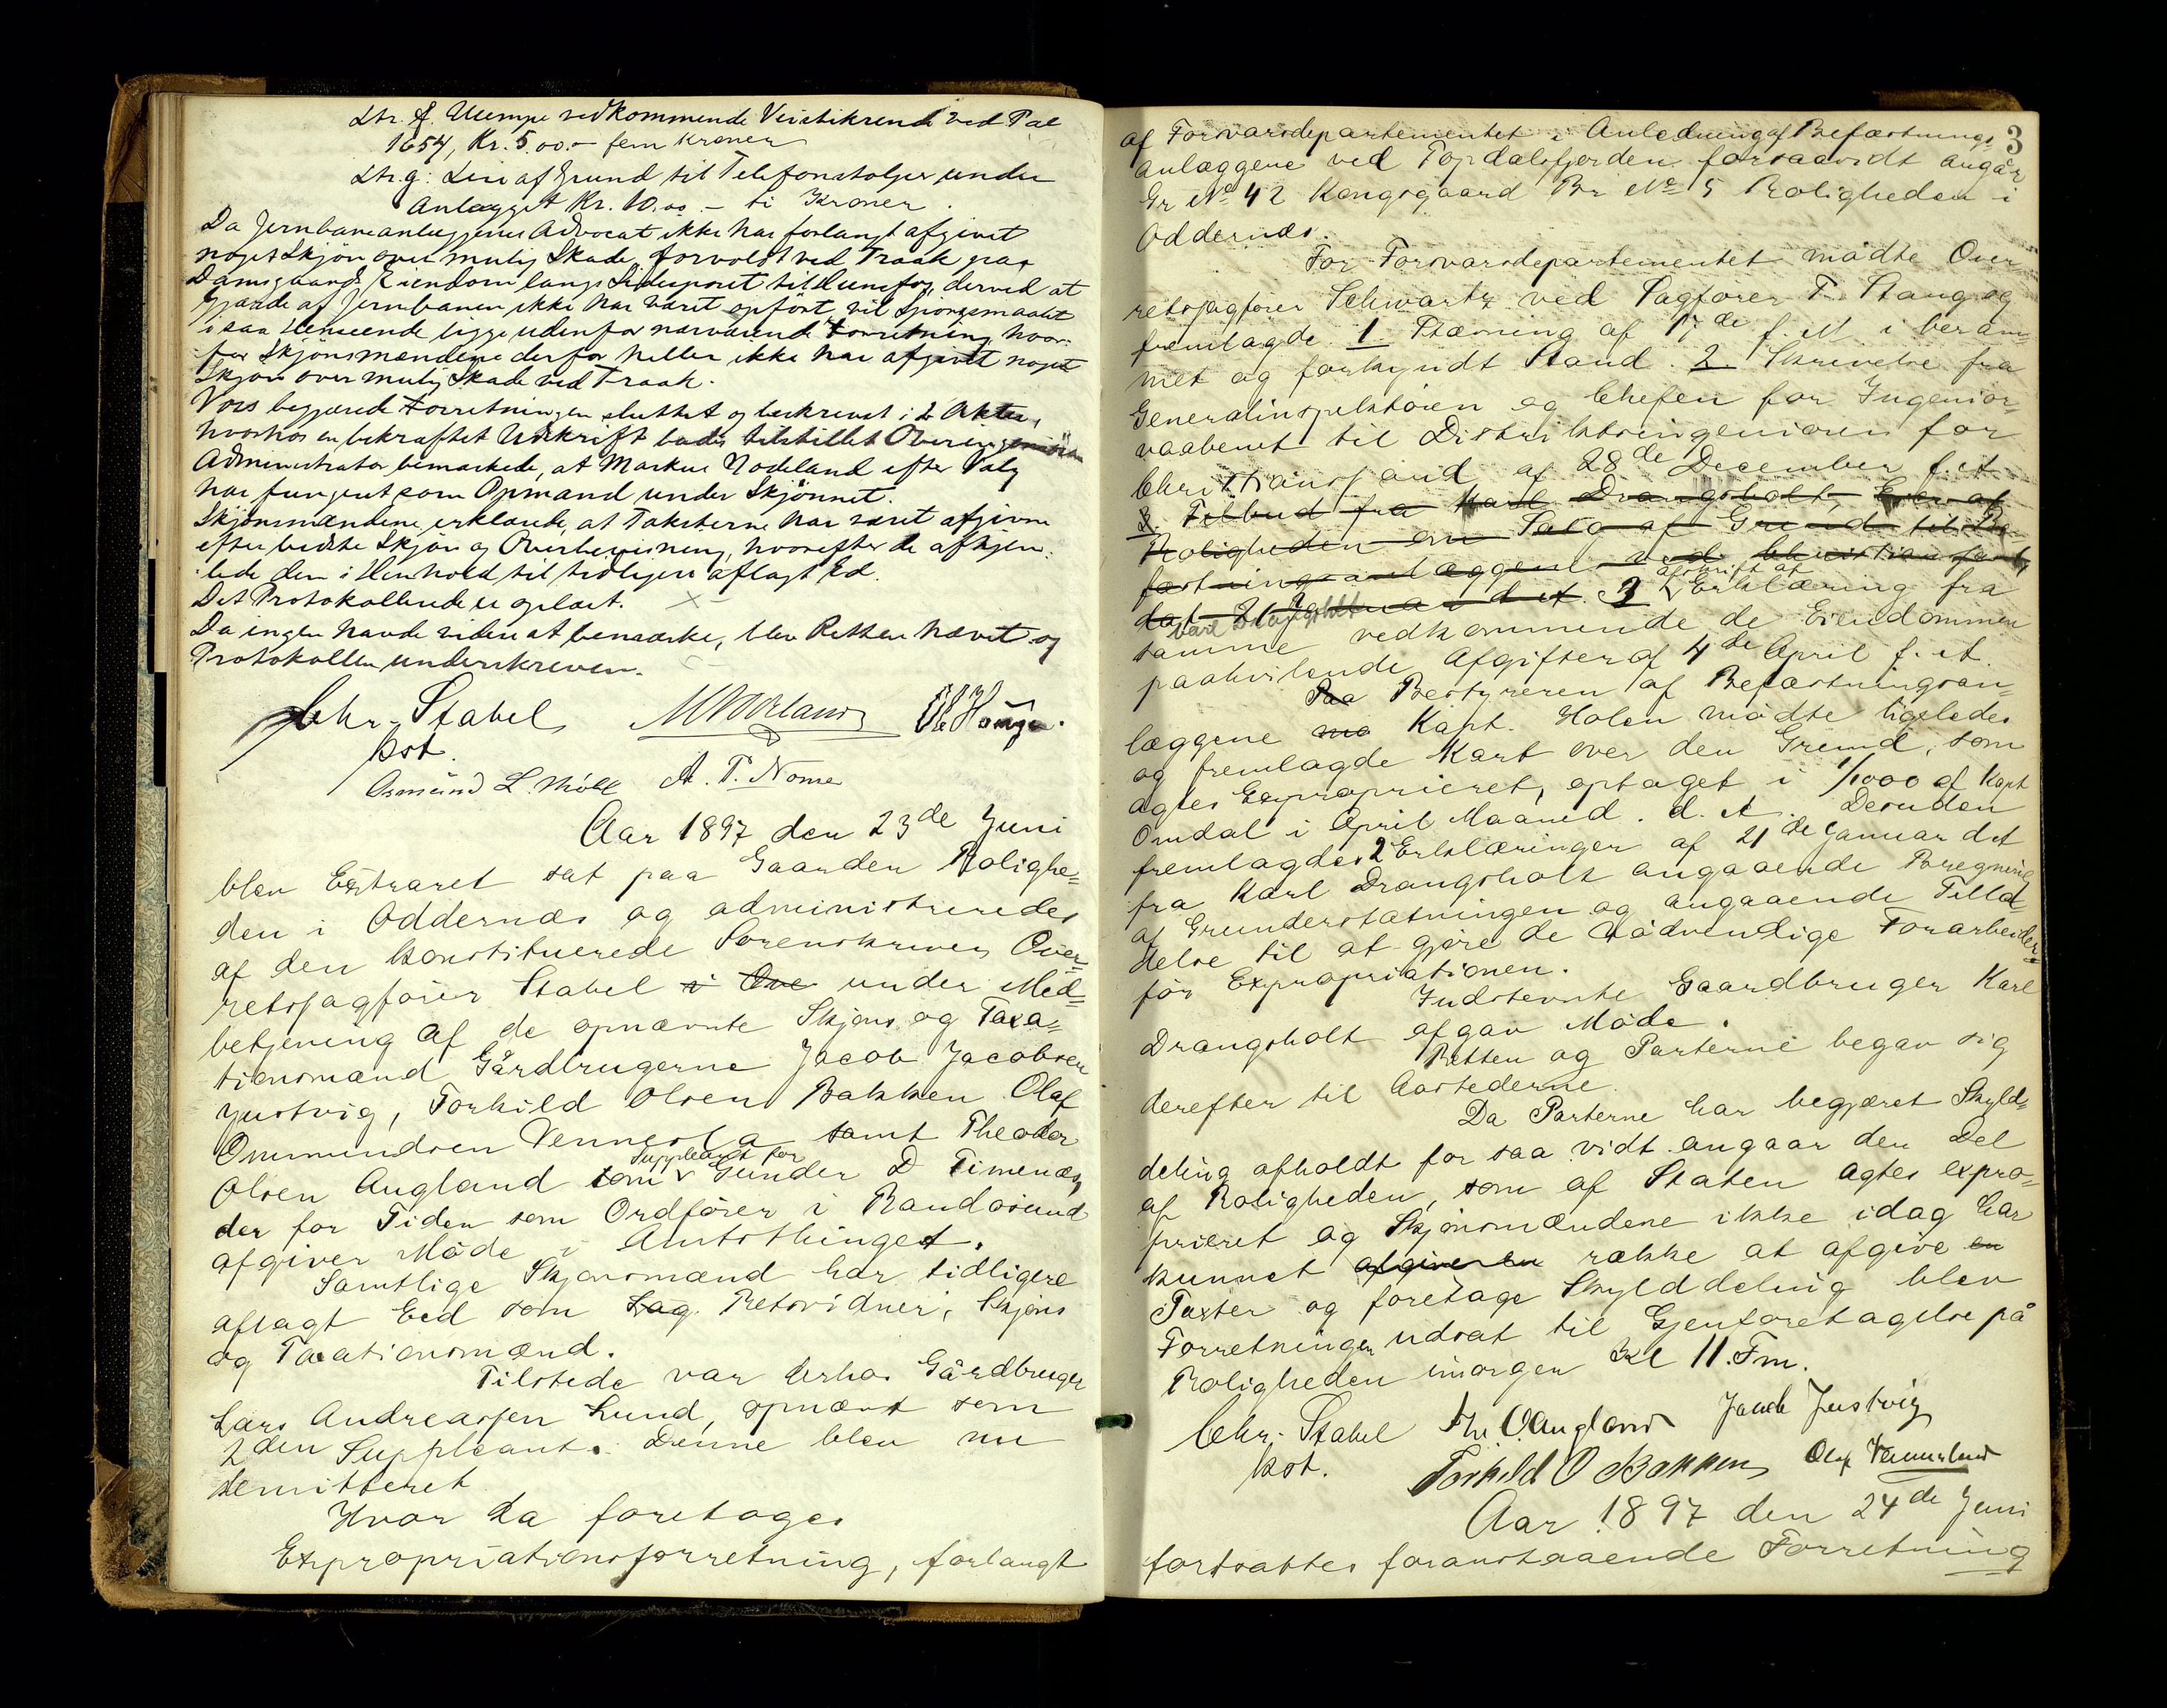 Ltr. f. Ulempe vedkommende Veistikrende ved Pæl
1654, Kr. 5.00.- fem Kroner
Ltr. g: Leie af Grund til Telefonstolper under
Anlægget Kr. 10.00.- ti Kroner.
Da Jernbaneanlæggenes Advocat ikke har forlangt afgivet
noget Skjøn over mulig Skade, forvoldt ved Traak paa
Damsgaards Eiendom langs Sidesporet til derved at
Gjærde af Jernbanen ikke har været opført, vil Spørgsmaalet
i saa Henseende ligge udenfor nærværende Forretning, hvor-
for Skjønsmændene derfor heller ikke har afgivet noget
Skjøn over mulig Skade ved Traak.
Vors begjærede Forretningen sluttet og beskrevet i 2 Akter,
hvorhos en bekræftet Udskrift bedes tilstillet Overingeniøren
Administrator bemærkede, at Markus Nodeland efter Valg
har fungeret som Opmand under Skjønnet.
Skjønsmændene erklærede, at Taksterne har været afgivne
efter bedste Skjøn og Overbevisning, hvorefter de afhjem-
lede dem i Henhold til tidligere aflagt Ed.
Det Protokollerede er oplæst.
Da ingen havde videre at bemærke, blev Retten hævet og
Protokollen underskreven.
Chr. Stabel
kst.
Osmund L. A. T. Nome
Aar 1897 den 23de Juni
blev Extraret sat paa Gaarden Rolighe=
den i Oddernæs og administreredes
af den konstituerede Sorenskriver Over=
retssagfører Stabel i Ove under Med=
betjening af de opnævnte Skjøns og Taxa=
tionsmænd Gårdbrugerne Jacob Jacobsen
Justvig, Torkild Olsen Bakken Olaf
Ommundsen Vennesla samt Theodor
suppleant for
Olsen Augland som Gunder D Timenæs,
der for Tiden som Ordfører i Randøsund
afgiver Møde i Amtsthinget.
Samtlige Skjønsmænd har tidligere
aflagt Eed som Lag. Retsvidner, Skjøns
og Taxationsmænd.
Tilstede var derhos Gårdbruger
Lars Andreassen Lund, opnævnt som
2den Suppleant. Denne blev nu
demitteret
Hvor da foretoges
Expropriationsforretning, forlangt
3
af Forsvarsdepartementet i Anledning af Befæstnings-
anlæggene ved Topdalsfjorden forsaavidt angår
Gr No 42 Kongsgaard Br No 5 Roligheden i
Oddernæs.
For Forsvarsdepartementet mødte Over
retssagfører Schwartz ved Sagfører T. Stang og
fremlagde 1. Stævning af 17de f. M. i beram-
met og forkyndt Stand. 2 Skrivelse fra
Generalinspektøren og Chefen for Ingeniør-
vaabenet til Distriktsingeniøren for
Christiansand af 28de December f. A
3. Tilbud fra Karl Drangsholt, Eier af
Roligheden om Salg af Grund til Be
fæstningsanlæggene ved Christiansand,
afskrift af
dat 21 Januar d. A. 3 Erklæring fra
Carl Drangsholt
samme vedkommende de Eiendommen
paahvilende Afgifter af 4de April f. A.
Paa Bestyreren af Befæstningsan-
læggene mø Kapt. Holen mødte ligeledes
og fremlagde Kart over den Grund, som
agtes Exproprieret, optaget i 1/1000 af Kapt
Omdal i April Maaned. d. A. Desuden
fremlagdes 2 Erklæringer af 21de Januar d A
fra Karl Drangsholt angaaende Beregning
af Grunderstatningen og angaaende Tilla-
delse til at gjøre de Nødvendige Forarbeider
før Expropriationen.
Indstevnte Gaardbruger Karl
Drangsholt afgav Møde.
Retten og Parterne begav sig
derefter til Aastederne.
Da Parterne har begjæret Skyld-
deling afholdt for saa vidt angaar den Del
af Roligheden, som af Staten agtes expro-
prieret og Skjønsmændene ikke idag har
kunnet afgive en række at afgive en
Taxter og foretage Skylddeling blev
Forretningen udsat til Gjenforetagelse på
Roligheden imorgen Kl 11. Fm.
Chr. Stabel Th. O Augland Jacob Justvig
kst. Torkild O Bakken
Aar 1897 den 24de Juni
fortsattes foranstaaende Forretning